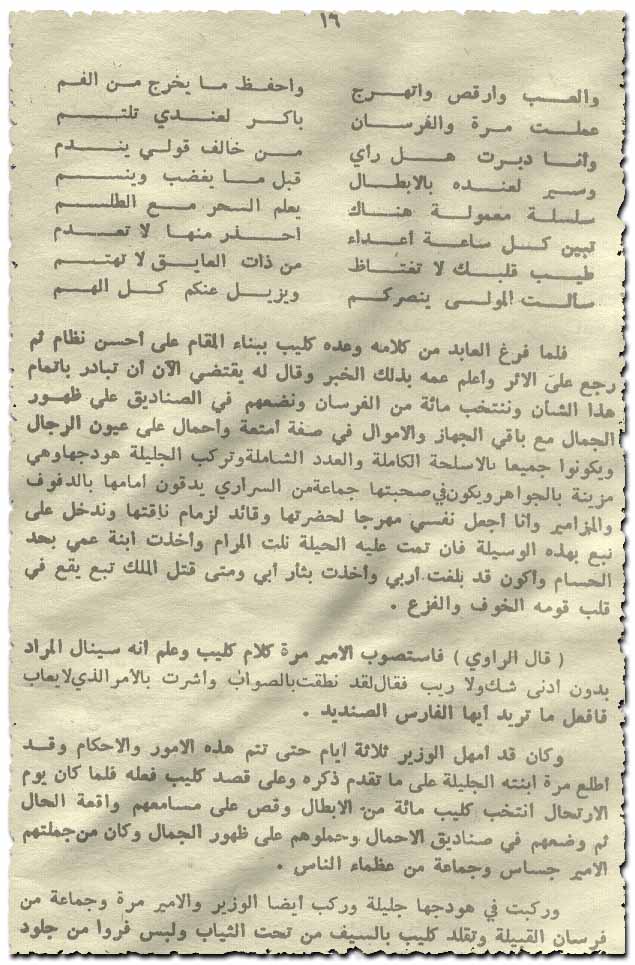 ١٦
والعب وارقص واتهرج واحفظ ما يخرج من الفم
عملت مرة والفرسان باكر لعندي تلتم
وأنا دبرت هل رأي من خالف قولي يندم
وسير لعنده بالابطال قبل ما يغضب وينسم
سلسلة معمولة هناك يعلم السحر مع الطلسم
تبين كل ساعة أعداء احذر منها لا تعدم
طيب قلبك لا تغتاظ من ذات العايق لا تهتم
سألت المولى ينصركم ويزيل عنكم كل الهم
فلما فرغ العابد من كلامه وعده كليب ببناء المقام على أحسن نظام ثم
رجع على الاثر وأعلم عمه بذلك الخبر وقال له يقتضي الآن أن تبادر باتمام
هذا الشأن وننتخب مائة من الفرسان ونضعهم في الصناديق على ظهور
الجمال مع باقي الجهاز والاموال في صفة أمتعة وأحمال على عيون الرجال
ويكونوا جميعا بالاسلحة الكاملة والعدد الشاملة وتركب الجليلة هودجها وهي
مزينة بالجواهر ويكون في صحبتها جماعة من السراري يدقون أمامها بالدفوف
والمزامير وأنا أجعل نفسي مهرجا لحضرتها وقائد لزمام ناقتها وندخل على
تبع بهذه الوسيلة فان تمت عليه الحيلة نلت المرام وأخذت ابنة عمي بحد
الحسام وأكون قد بلغت أربي وأخذت بثار أبي ومتى قتل الملك تبع يقع في
قلب قومه الخوف والفزع .
( قال الراوي ) فاستصوب الامير مرة كلام كليب وعلم أنه سينال المراد
بدون أدنى شك ولا ريب فقال لقد نطقت بالصواب وأشرت بالأمر الذي لا يعاب
فافعل ما تريد أيها الفارس الصنديد .
وكان قد أمهل الوزير ثلاثة ايام حتى تتم هذه الامور والاحكام وقد
أطلع مرة ابنته الجليلة على ما تقدم ذكره وعلى قصد كليب فعله فلما كان يوم
الارتحال انتخب كليب مائة من الابطال وقص على مسامعهم واقعة الحال
ثم وضعهم في صناديق الاحمال وحملوهم على ظهور الجمال وكان من جملتهم
الامير جساس وجماعة من عظماء الناس .
وركبت في هودجها جليلة وركب أيضا الوزير والامير مرة وجماعة من
فرسان القبيلة وتقلد كليب بالسيف من تحت الثياب ولبس فروا من جلود